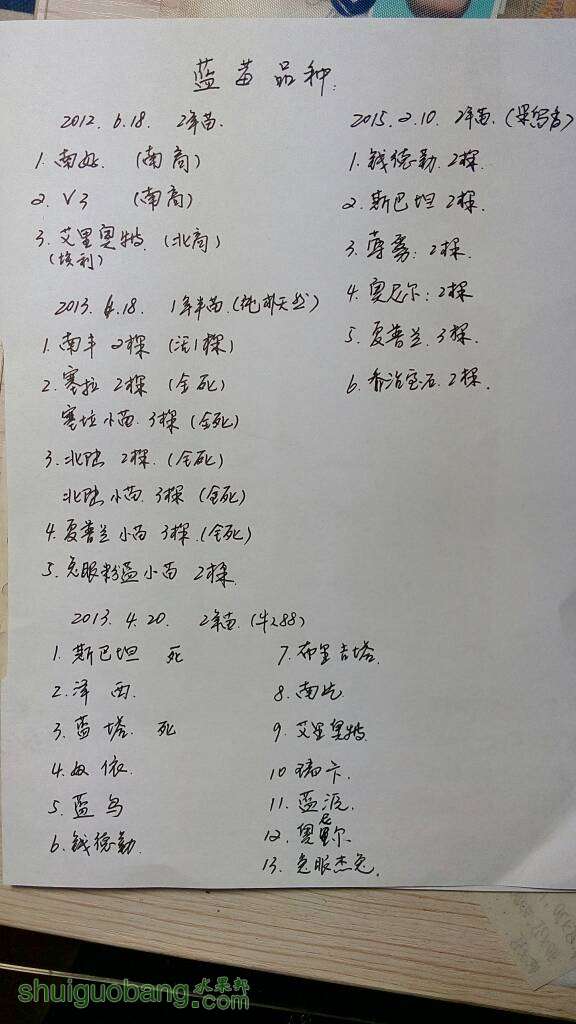 蓝莓品种.
2012. 6.18. 2年苗.
1. 南 (南高)
2. V3 (南高)
3. 艾里奥特. (北高)
(埃利)
2013. 4.18. 1年半苗.(纯天然)
1. 南丰 2棵 (活1棵)
2. 塞拉 2棵 (全死)
塞拉小苗. 3棵 (全死)
3. 北陆 2棵. (全死)
北陆小苗. 3棵 (全死)
4. 夏普兰小苗 3棵.(全死)
5. 兔眼粉蓝小苗 2棵.
2013. 4.20. 2年苗.(牛288)
1. 斯巴坦 死
2. 泽西.
3. 蓝塔. 死
4. 奴依.
5. 蓝鸟
6. 钱德勒.
7. 布里吉塔.
8. 南
9. 艾里奥特
10 瑞卡.
11. 蓝派.
12. 奥尼尔.
13. 兔眼杰兔.
2015. 2.10. 2年苗.
1. 钱德勒. 2棵.
2. 斯巴坦 2棵.
3. 薄雾: 2棵.
4. 奥尼尔: 2棵
5. 夏普兰. 3棵.
6. 乔治宝石. 2棵.
水果邦
shuiguobang.com